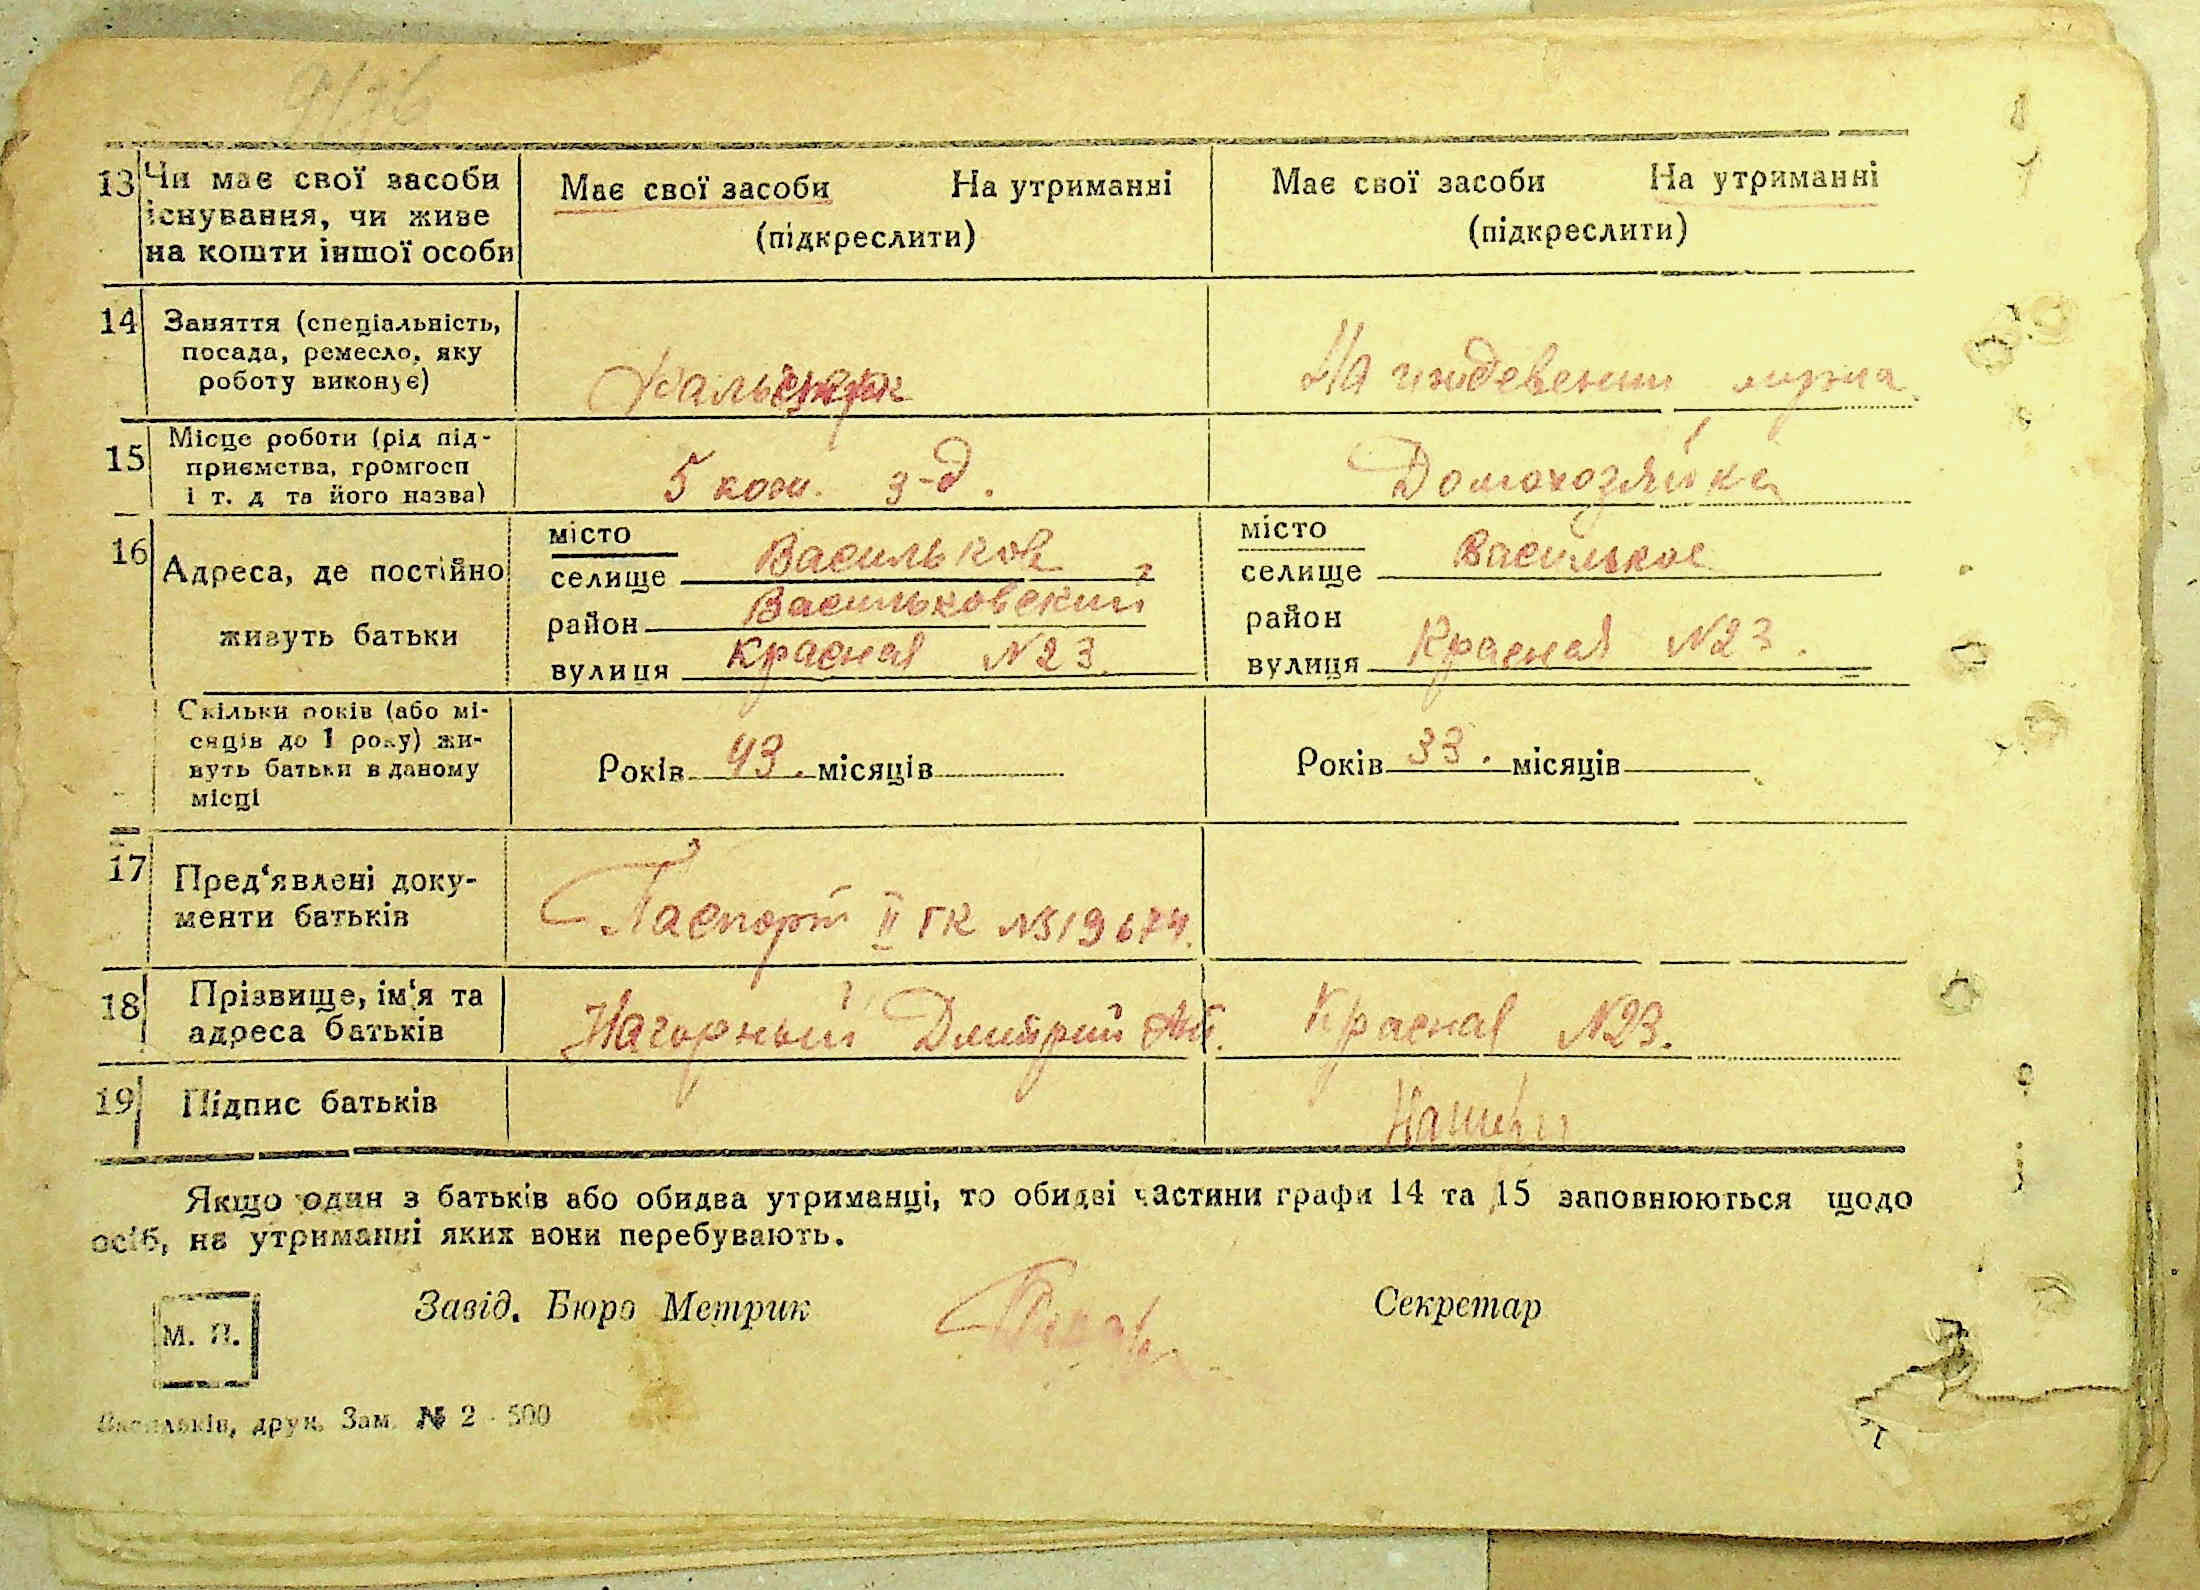 9/76
13 Чи має свої засоби існування, чи живе на кошти іншої особи
Має свої засоби На утриманні
(підкреслити)
Має свої засоби На утриманні
(підкреслити)
14 Заняття (спеціальність, посада, ремесло, яку роботу виконує)
На иждевении мужа
15 Місце роботи (рід під-приємства, громгосп і т. д та його назва)
5 кож. з-д.
Домохозяйка
16 Адреса, де постійно живуть батьки
місто
селище Васильков
район Васильковский
вулиця Красная №23.
місто
селище Васильков
район
вулиця Красная №23.
Скільки років (або мі-
сяців до 1 року) жи-
вуть батьки в даному
місці
Років 43. місяців
Років 33. місяців
17 Пред‘явлені доку-
менти батьків
Паспорт II ГК №519674.
18 Прізвище, ім‘я та
адреса батьків
Нагорный Дмитрий Ан. Красная №23.
19 Підпис батьків
Якщо один з батьків або обидва утриманці, то обидві частини графи 14 та 15 заповнюються щодо
осіб, на утриманні яких вони перебувають.
М. П.
Завід. Бюро Метрик
Секретар
Васильків, друк. Зам. № 2 - 500